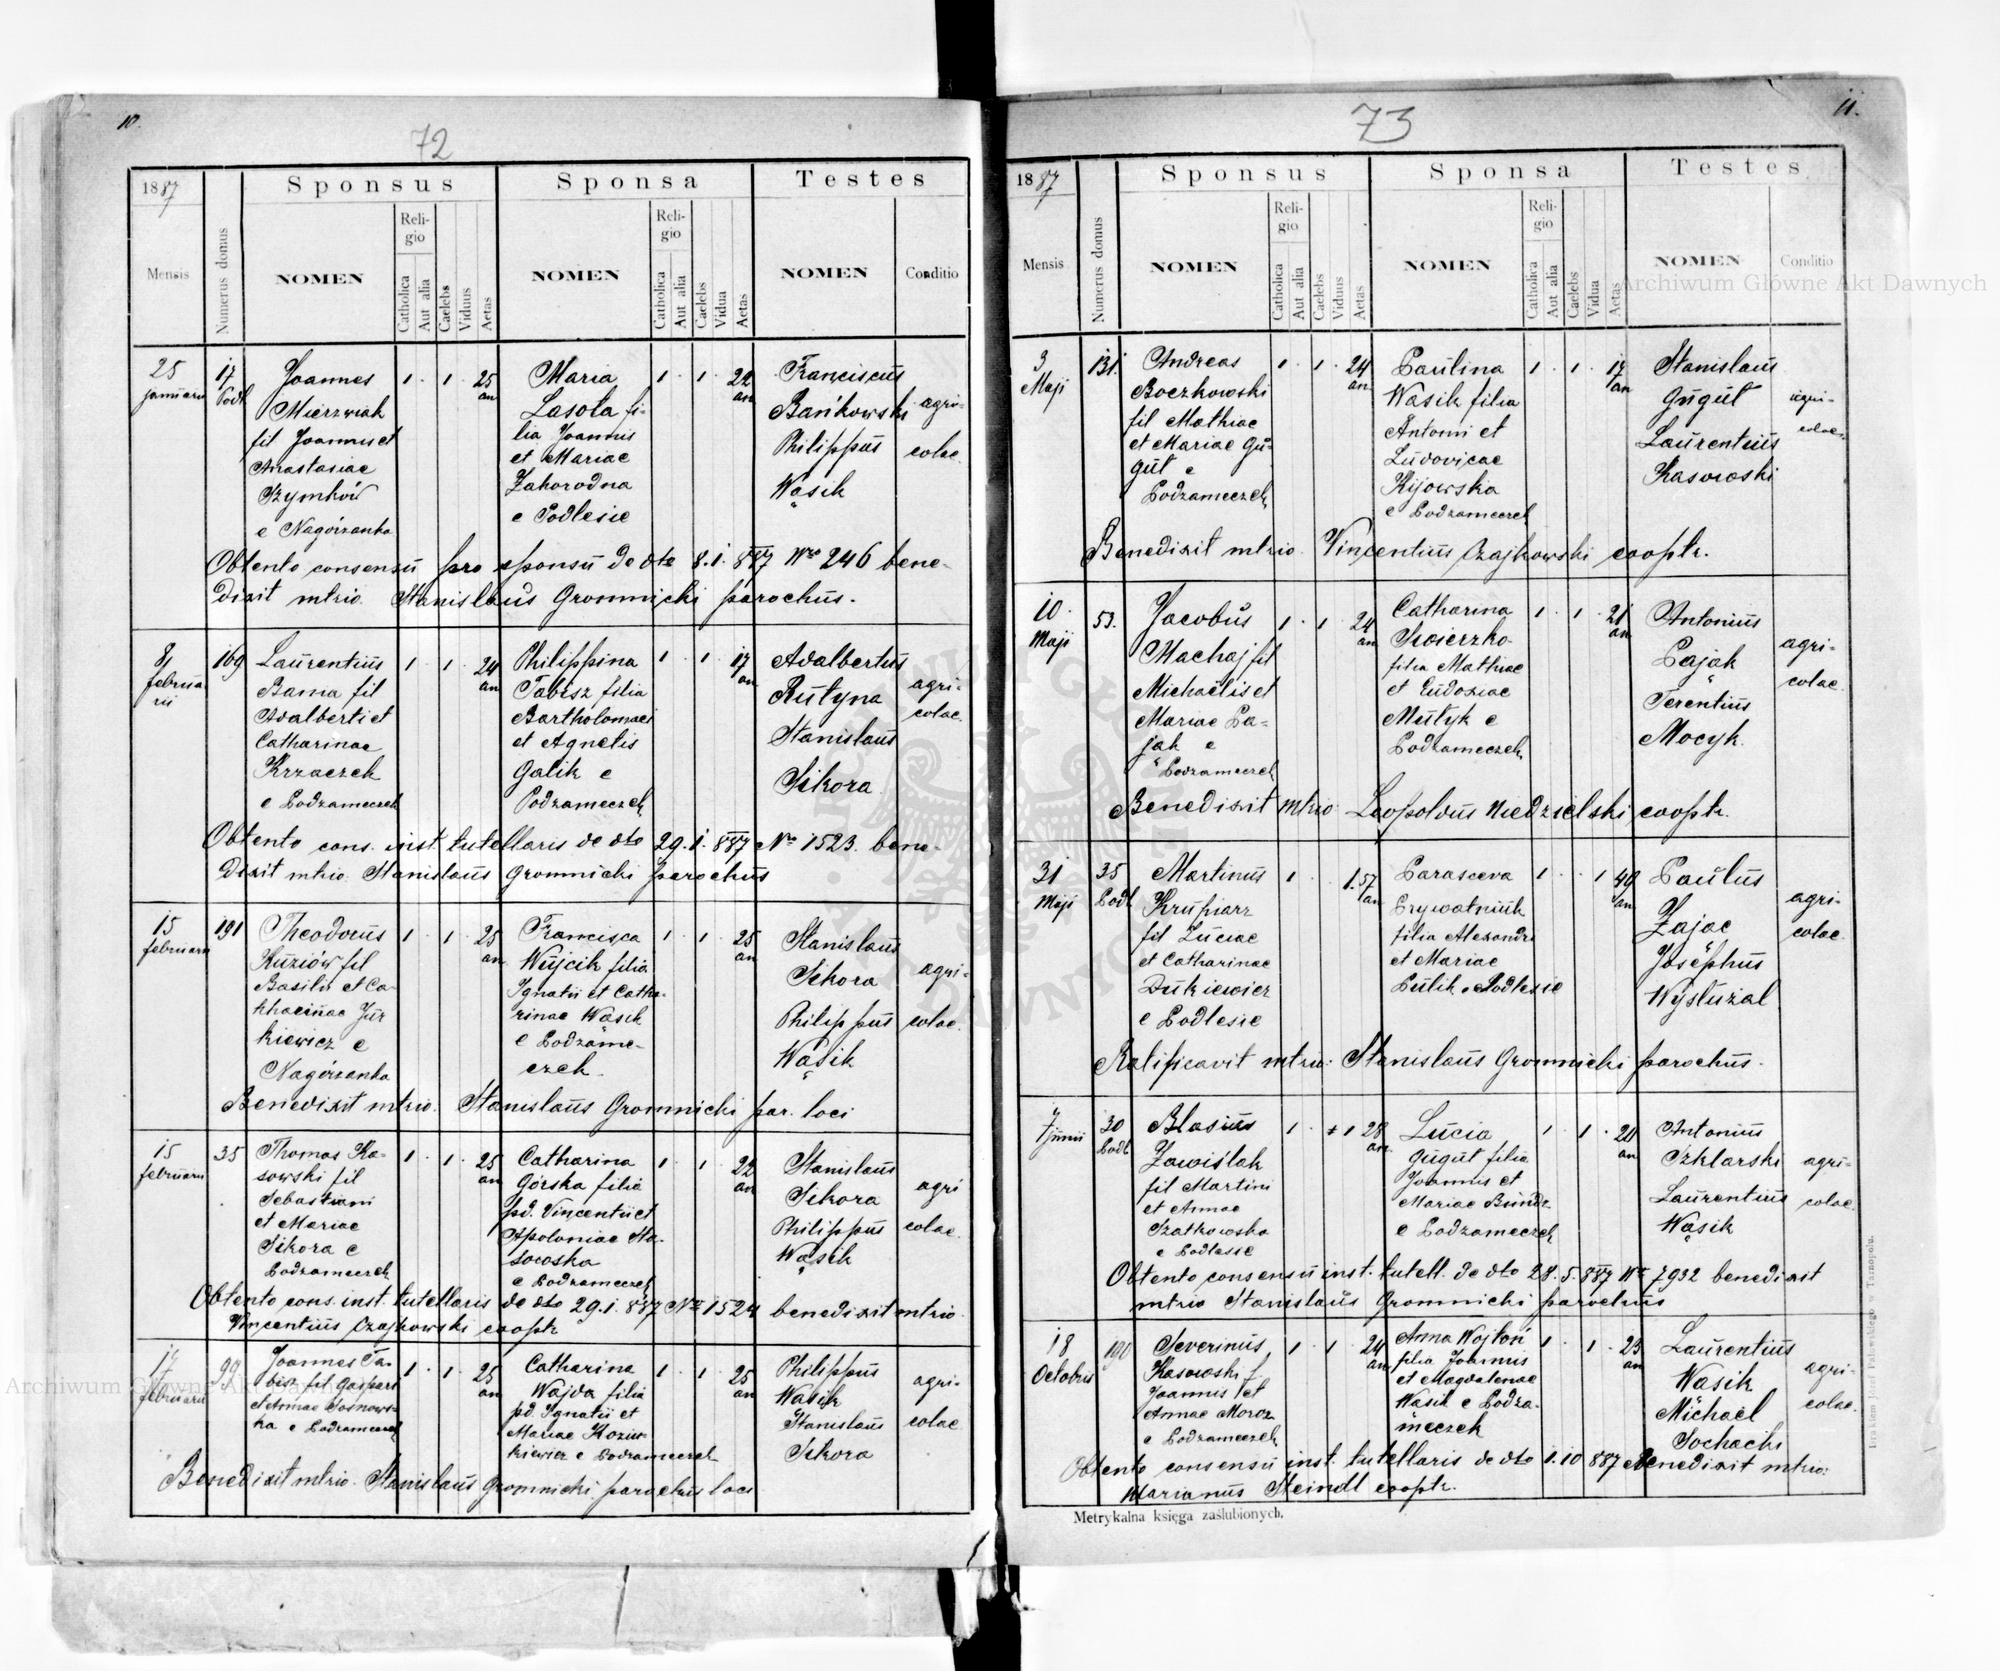 10.
72
1887
Sponsus
Sponsa
Testes
Mensis
Numerus domus
NOMEN
Religio
Catholica
Aut alia
Caelebs
Viduus
Aetas
NOMEN
Religio
Catholica
Aut alia
Caelebs
Vidua
Aetas
NOMEN
Conditio
25
januarii
17
Podl
Joannes
Mierzwiak
fil Joannis et
Anastasiae
Szymków
e Nagórzanka
1 . 1 . 25
an
Maria
Lasota fi-
lia Joannis
et Mariae
Zahorodna
e Podlesie
1 . 1 . 22
an
Franciscus
Bańkowski
Philippus
Wąsik
agri-
colae
Obtento consensu pro sponsu de dto 8.1.887 Nro 246 bene-
dixit mtrio Stanislaus Gromnicki parochus.
8/
februa
rii
169
Laurentius
Barna fil
Adalberti et
Catharinae
Krzaczek
e Podzameczek
1 . 1 . 24
an
Philippina
Tabisz filia
Bartholomaei
et Agnetis
Galik e
Podzameczek
1 . 1 . 17
an
Adalbertus
Rutyna
Stanislaus
Sikora
agri-
colae
Obtento cons. inst. tutellaris de dto 29.1.887 No 1523. bene-
dixit mtrio Stanislaus Gromnicki parochus
15
februarii
191
Theodorus
Kuziów fil
Basilii et Ca-
tharinae Jur
kiewicz e
Nagórzanka
1 . 1 . 25
an
Francisca
Wujcik filia
Ignatii et Catha-
rinae Wąsik
e Podzame-
czek
1 . 1 . 25
an
Stanislaus
Sikora
Philippus
Wąsik
agri-
colae
Benedixit mtrio. Stanislaus Gromnicki par. loci
15
februarii
35
Thomas Ka-
sowski fil
Sebastiani
et Mariae
Sikora e
Podzameczek
1 . 1 . 25
an
Catharina
Górska filia
pd. Vincentii et
Apoloniae
e Podzameczek
1 . 1 . 22
an
Stanislaus
Sikora
Philippus
Wąsik
agri
colae
Obtento cons. inst. tutellaris de dto 29.1.887 No 1524 benedixit mtrio
Vincentius Czajkowski cooptr
17
februarii
99
Joannes Ta-
bisz fil Gaspari
et Annae Sosnows-
ka e Podzameczek
1 . 1 . 25
an
Catharina
Wajda filia
pd. Ignatii et
Mariae Koziur
kiewicz e Podzameczek
1 . 1 . 25
an
Philippus
Wąsik
Stanislaus
Sikora
agri-
colae
Benedixit mtrio. Stanislaus Gromnicki parochus loci
73
11.
1887
Sponsus
Sponsa
Testes
Mensis
Numerus domus
NOMEN
Religio
Catholica
Aut alia
Caelebs
Viduus
Aetas
NOMEN
Religio
Catholica
Aut alia
Caelebs
Vidua
Aetas
NOMEN
Conditio
3
Maji
131
Andreas
Boczkowski
fil Mathiae
et Mariae Gu-
gut e
Podzameczek
1 . 1 . 24
an
Paulina
Wasik filia
Antoni et
Ludovicae
Kijowska
e Podzameczek
1 . 1 . 19
an
Stanislaus
Gugut
Laurentius
Kasowski
agri-
colae
Benedixit mtrio. Vincentius Czajkowski cooptr.
10
Maji
53.
Jacobus
Machaj fil
Michaelis et
Mariae Pa-
jąk e
Podzameczek
1 . 1 . 24
an
Catharina
Swierzko
filia Mathiae
et Eudoxiae
Mutyk e
Podzameczek
1 . 1 . 21
an
Antonius
Pająk
Terentius
Mocyk.
agri-
colae
Benedixit mtrio Leopoldus Niedzielski cooptr.
31
Maji
35
Podl
Martinus
Krupiarz
fil Luciae
et Catharinae
Dukiewicz
e Podlesie
1 . . 1. 57
an
Parasceva
Prywatniuk
filia Alexandri
et Mariae
Pulik e Podlesie
1 . . 1 49
an
Paulus
Zając
Josephus
Wysłużal
agri-
colae
Ratificavit mtrio: Stanislaus Gromnicki parochus.
7 junii
30
Podl.
Blasius
Zawiślak
fil Martini
et Annae
Szatkowska
e Podlesie
1 . 1 28
an
Lucia
Gugut filia
Joannis et
Mariae
e Podzameczek
1 . 1 . 20
an
Antonius
Szklarski
Laurentius
Wąsik
agri-
colae
Obtento consensu inst. tutell. de dto 28.5.887 No 7932 benedixit
mtrio Stanislaus Gromnicki parochus
18
Octobris
190
Severinus
Kasowski f
Joannis et
Annae Moroz
e Podzameczek
1 . 1 . 24
an
Anna Wojtoń
filia Joannis
et Magdalenae
Wasik e Podza-
meczek
1 . 1 . 23
an
Laurentius
Wąsik
Michael
Sochacki
agri-
colae
Obtento consensu inst. tutellaris de dto 1.10 887 Benedixit mtrio:
Marianus Steindl cooptr.
Metrykalna księga zaślubionych.
Archiwum Główne Akt Dawnych
Archiwum Główne Akt Dawnych